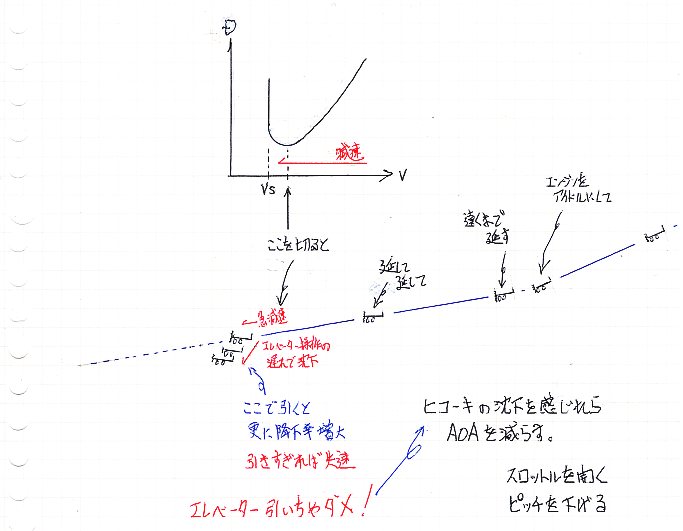 D
減速
Vs
V
ここを切ると
エンジンを
アイドルにして
遠くまで
延す
延して
延して
急減速
エレベーター操作の
遅れで沈下
ここで引くと
更に降下率増大
引きすぎれば失速
エレベーター引いちゃダメ!
ヒコーキの沈下を感じれら
AOAを減らす。
スロットルを開く
ピッチを下げる